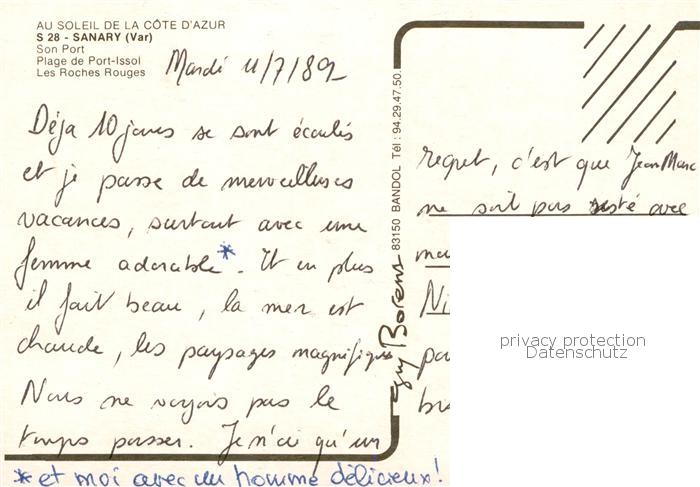 AU SOLEIL DE LA CÔTE D'AZUR
S 28 - SANARY (Var)
Son Port
Plage de Port-Issol
Les Roches Rouges
Mardi 11/7/89
Déja 10 jours se sont écoulés
et je passe de merveilleuses
vacances, surtout avec une
femme adorable*. Et en plus
il fait beau, la mer est
chaude, les paysages magnifiques
Nous ne voyons pas le
temps passer. Je n'ai qu'un
*et moi avec un homme délicieux!
guy Borens 83150 BANDOL Tél : 94.29.47.50.
regret, c'est que Jean Marc
ne soit pas resté avec
Ni
privacy protection
Datenschutz